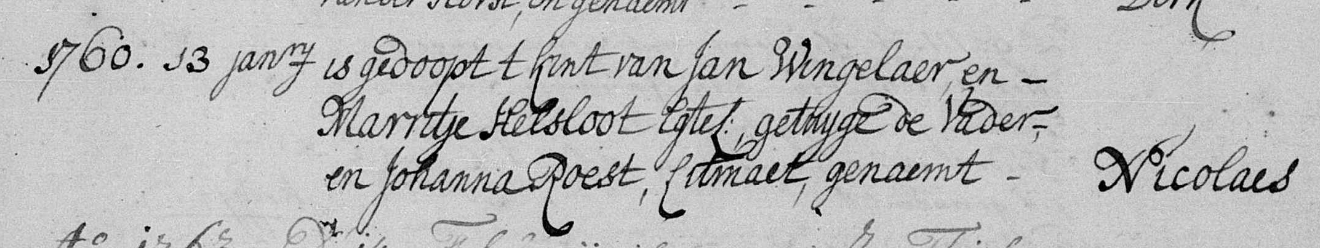 van der Horst, en genaemt - - - - - Dirk
1760. 13 janry is gedoopt t kint van Jan Wingelaer, en -
Marritje Helsloot Egtel:, getuyge de Vader,
en Johanna Roest, Litmaet, genaemt - Nicolaes